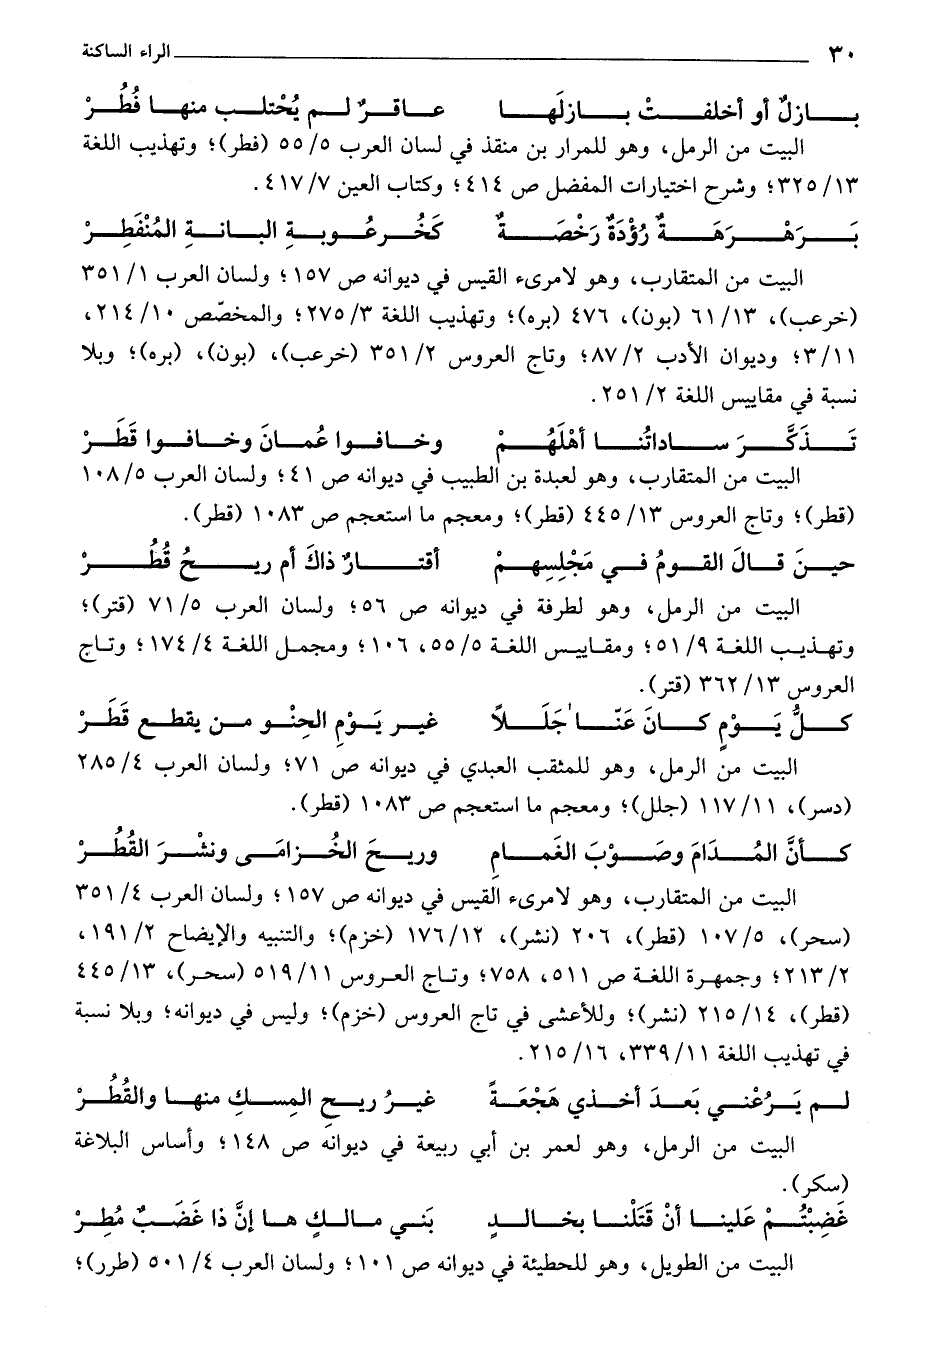 ٣٠ الراء الساكنة
بازلٌ أو أخلفتْ بازلَها عاقرٌ لم يُحْتلب منها فُطُرْ
البيت من الرمل، وهو للمرار بن منقذ في لسان العرب ٥/ ٥٥ (فطر)؛ وتهذيب اللغة
١٣/ ٣٢٥؛ وشرح اختيارات المفضل ص ٤١٤؛ وكتاب العين ٧/ ٤١٧.
بَرَهْرَهَةٌ رُؤْدَةٌ رَخْصَةٌ كَخُرعُوبةِ البانةِ المُنْفَطِرْ
البيت من المتقارب، وهو لامرىء القيس في ديوانه ص ١٥٧؛ ولسان العرب ١/ ٣٥١
(خرعب)، ١٣/ ٦١ (بون)، ٤٧٦ (بره)؛ وتهذيب اللغة ٣/ ٢٧٥؛ والمخصّص ١٠/ ٢١٤،
١١/ ٣؛ وديوان الأدب ٢/ ٨٧؛ وتاج العروس ٢/ ٣٥١ (خرعب)، (بون)، (بره)؛ وبلا
نسبة في مقاييس اللغة ٢/ ٢٥١.
تَذَكَّرَ ساداتُنا أهْلَهُمْ وخافوا عُمانَ وخافوا قَطَرْ
البيت من المتقارب، وهو لعبدة بن الطبيب في ديوانه ص ٤١؛ ولسان العرب ٥/ ١٠٨
(قطر)؛ وتاج العروس ١٣/ ٤٤٥ (قطر)؛ ومعجم ما استعجم ص ١٠٨٣ (قطر).
حينَ قالَ القومُ في مَجْلِسِهِمْ أقتارٌ ذاكَ أم ريحُ قُطُرْ
البيت من الرمل، وهو لطرفة في ديوانه ص ٥٦؛ ولسان العرب ٥/ ٧١ (قتر)؛
وتهذيب اللغة ٩/ ٥١؛ ومقاييس اللغة ٥/ ٥٥، ١٠٦؛ ومجمل اللغة ٤/ ١٧٤؛ وتاج
العروس ١٣/ ٣٦٢ (قتر).
كلُّ يَوْمٍ كانَ عَنّا جَلَلاً غير يَوْمِ الحِنْو من يقطع قَطَرْ
البيت من الرمل، وهو للمثقب العبدي في ديوانه ص ٧١؛ ولسان العرب ٤/ ٢٨٥
(دسر)، ١١/ ١١٧ (جلل)؛ ومعجم ما استعجم ص ١٠٨٣ (قطر).
كأنَّ المُدَامَ وصَوْبَ الغَمامِ وريحَ الخُزامَى ونشْرَ القُطُرْ
البيت من المتقارب، وهو لامرىء القيس في ديوانه ص ١٥٧؛ ولسان العرب ٤/ ٣٥١
(سحر)، ٥/ ١٠٧ (قطر)، ٢٠٦ (نشر)، ١٢/ ١٧٦ (خزم)؛ والتنبيه والإيضاح ٢/ ١٩١،
٢/ ٢١٣؛ وجمهرة اللغة ص ٥١١، ٧٥٨؛ وتاج العروس ١١/ ٥١٩ (سحر)، ١٣/ ٤٤٥
(قطر)، ١٤/ ٢١٥ (نشر)؛ وللأعشى في تاج العروس (خزم)؛ وليس في ديوانه؛ وبلا نسبة
في تهذيب اللغة ١١/ ٣٣٩، ١٦/ ٢١٥.
لم يَرُعْني بَعدَ أخذي هَجْعَةً غيرُ ريحِ المِسكِ منها والقُطُرْ
البيت من الرمل، وهو لعمر بن أبي ربيعة في ديوانه ص ١٤٨؛ وأساس البلاغة
(سكر).
غَضِبْتُمْ عَلينا أنْ قَتَلْنا بخالدٍ بَني مالكٍ ها إنَّ ذا غَضَبٌ مُطِرْ
البيت من الطويل، وهو للحطيئة في ديوانه ص ١٠١؛ ولسان العرب ٤/ ٥٠١ (طرر)؛